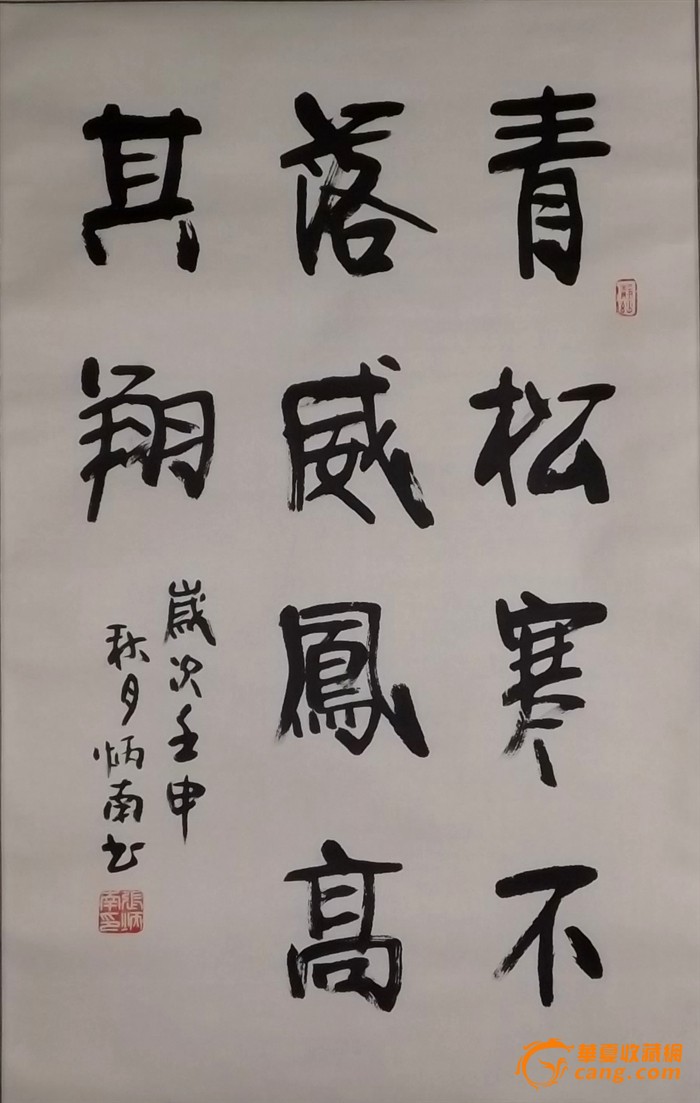 青松寒不
落威鳳高
其翔
歲次壬申
秋月炳南书
張炳南印
華夏收藏網
cang.com